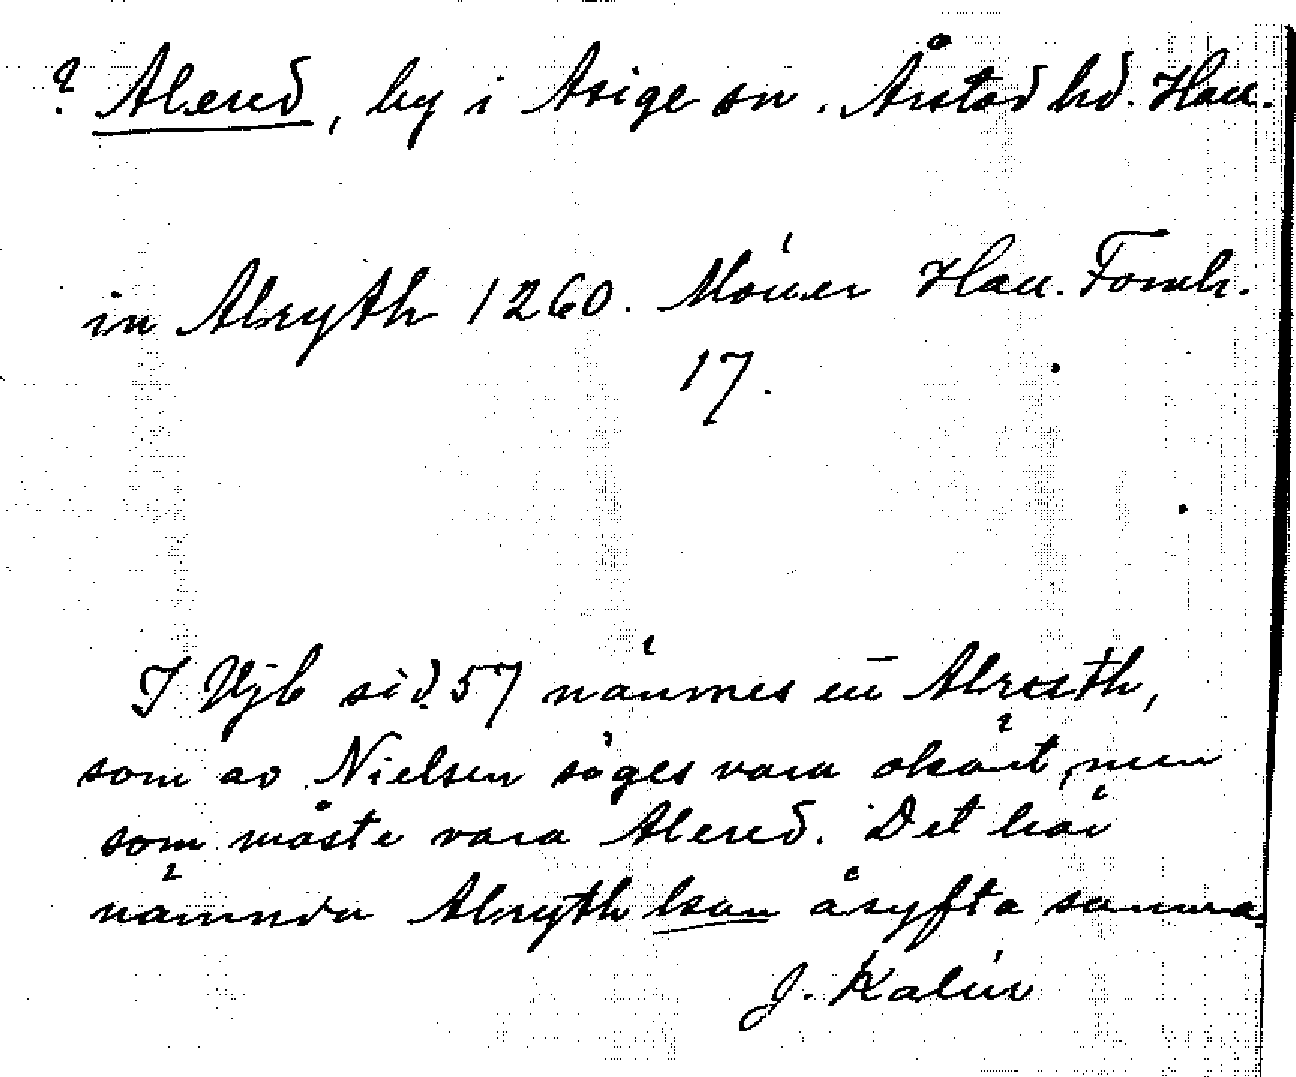 ? Alered, by i Asige sn. Årstad hd. Hall.
in Alryth 1260. Móller Hall. Fornh.
17.
I Vjb sid. 57 nämnes en Alrëth,
som av Nielsen säges vara okänt, men
som måste vara Alered. Det här
nämnda Alryth kan åsyfta samma
J. Kalén